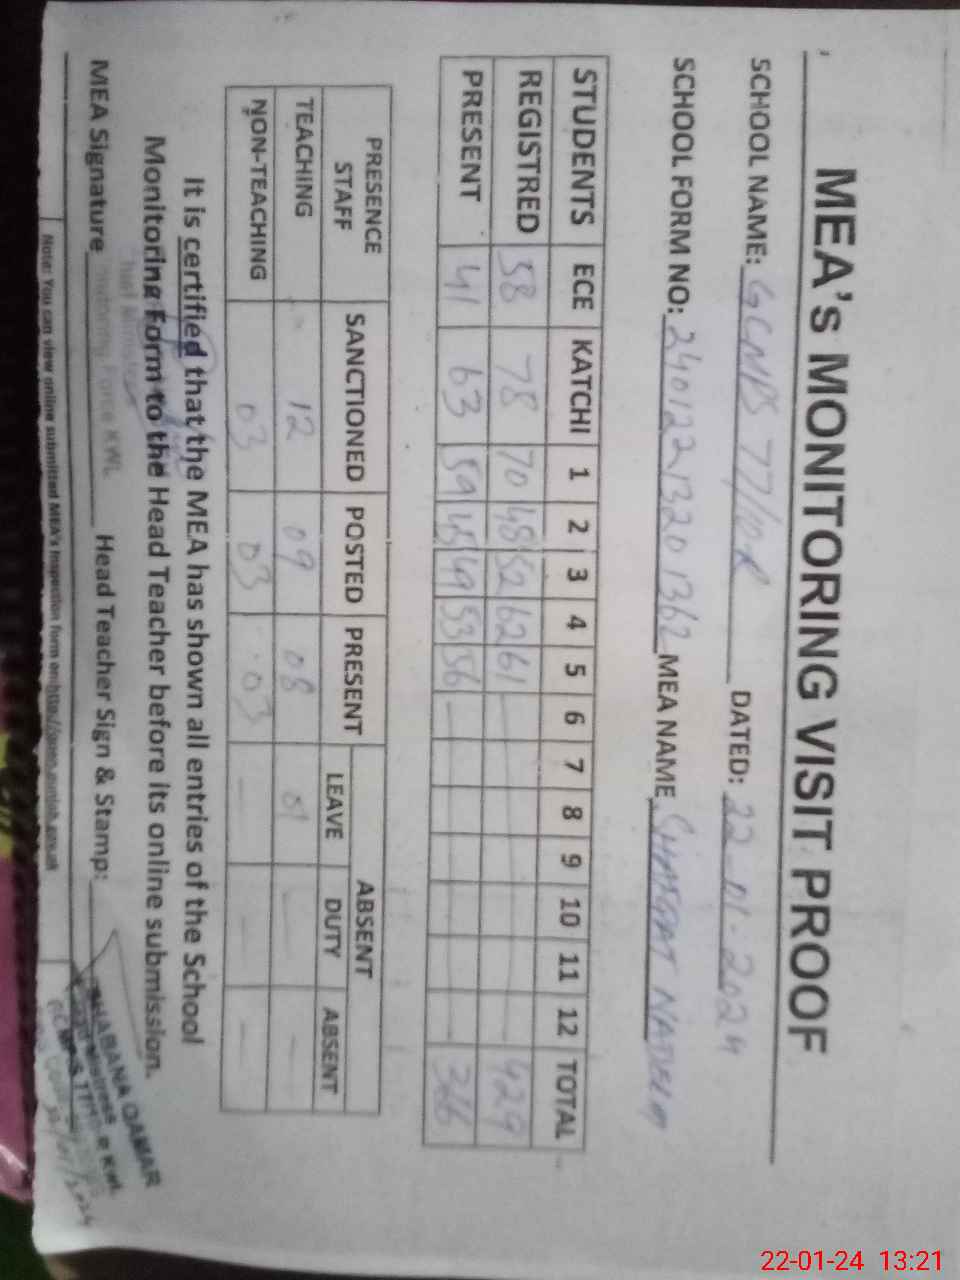 MEA's MONITORING VISIT PROOF
SCHOOL NAME: GCMPS 77/10R DATED: 22-01-2024
SCHOOL FORM NO: 24012213201362 MEA NAME
STUDENTS ECE KATCHI 1 2 3 4 5 6 7 8 9 10 11 12 TOTAL
REGISTRED 58 78 70 48 52 62 61 — 429
PRESENT 41 63 59 45 49 53 56 — 366
PRESENCE STAFF SANCTIONED POSTED PRESENT ABSENT
LEAVE DUTY ABSENT
TEACHING 12 09 08 01 — —
NON-TEACHING 03 03 03 — — —
It is certified that the MEA has shown all entries of the School
Monitoring Form to the Head Teacher before its online submission.
MEA Signature Head Teacher Sign & Stamp:
Force KWL
SHABANA QAMAR
Head Mistress
Note: You can view online submitted MEA's inspection form on:
22-01-24 13:21